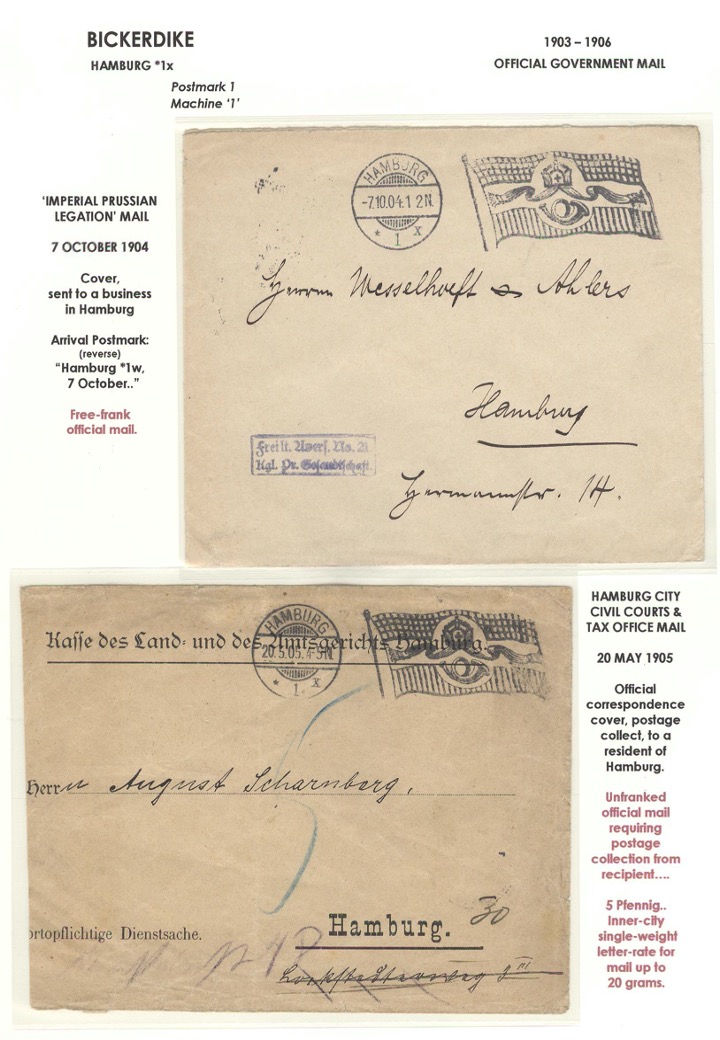 BICKERDIKE
HAMBURG *1x
1903 – 1906
OFFICIAL GOVERNMENT MAIL
Postmark 1
Machine ‘1’
‘IMPERIAL PRUSSIAN
LEGATION’ MAIL
7 OCTOBER 1904
Cover,
sent to a business
in Hamburg
Arrival Postmark:
(reverse)
“Hamburg *1w,
7 October..”
Free-frank
official mail.
HAMBURG
-7.10.04.1 2N.
* 1 x
Herren Wesselhoeft & Ahlers
Hamburg
Hermannstr. 14.
Frei lt. Avers. No. 21
Kgl. Pr. Gesandtschaft.
HAMBURG CITY
CIVIL COURTS &
TAX OFFICE MAIL
20 MAY 1905
Official
correspondence
cover, postage
collect, to a
resident of
Hamburg.
Unfranked
official mail
requiring
postage
collection from
recipient....
5 Pfennig..
Inner-city
single-weight
letter-rate for
mail up to
20 grams.
HAMBURG
20.5.05. 4-5N.
* 1. x
Kasse des Land- und des Amtsgerichts Hamburg.
Herrn August Scharnberg,
5
30
Hamburg.
ortopflichtige Dienstsache.
Lokstedterweg